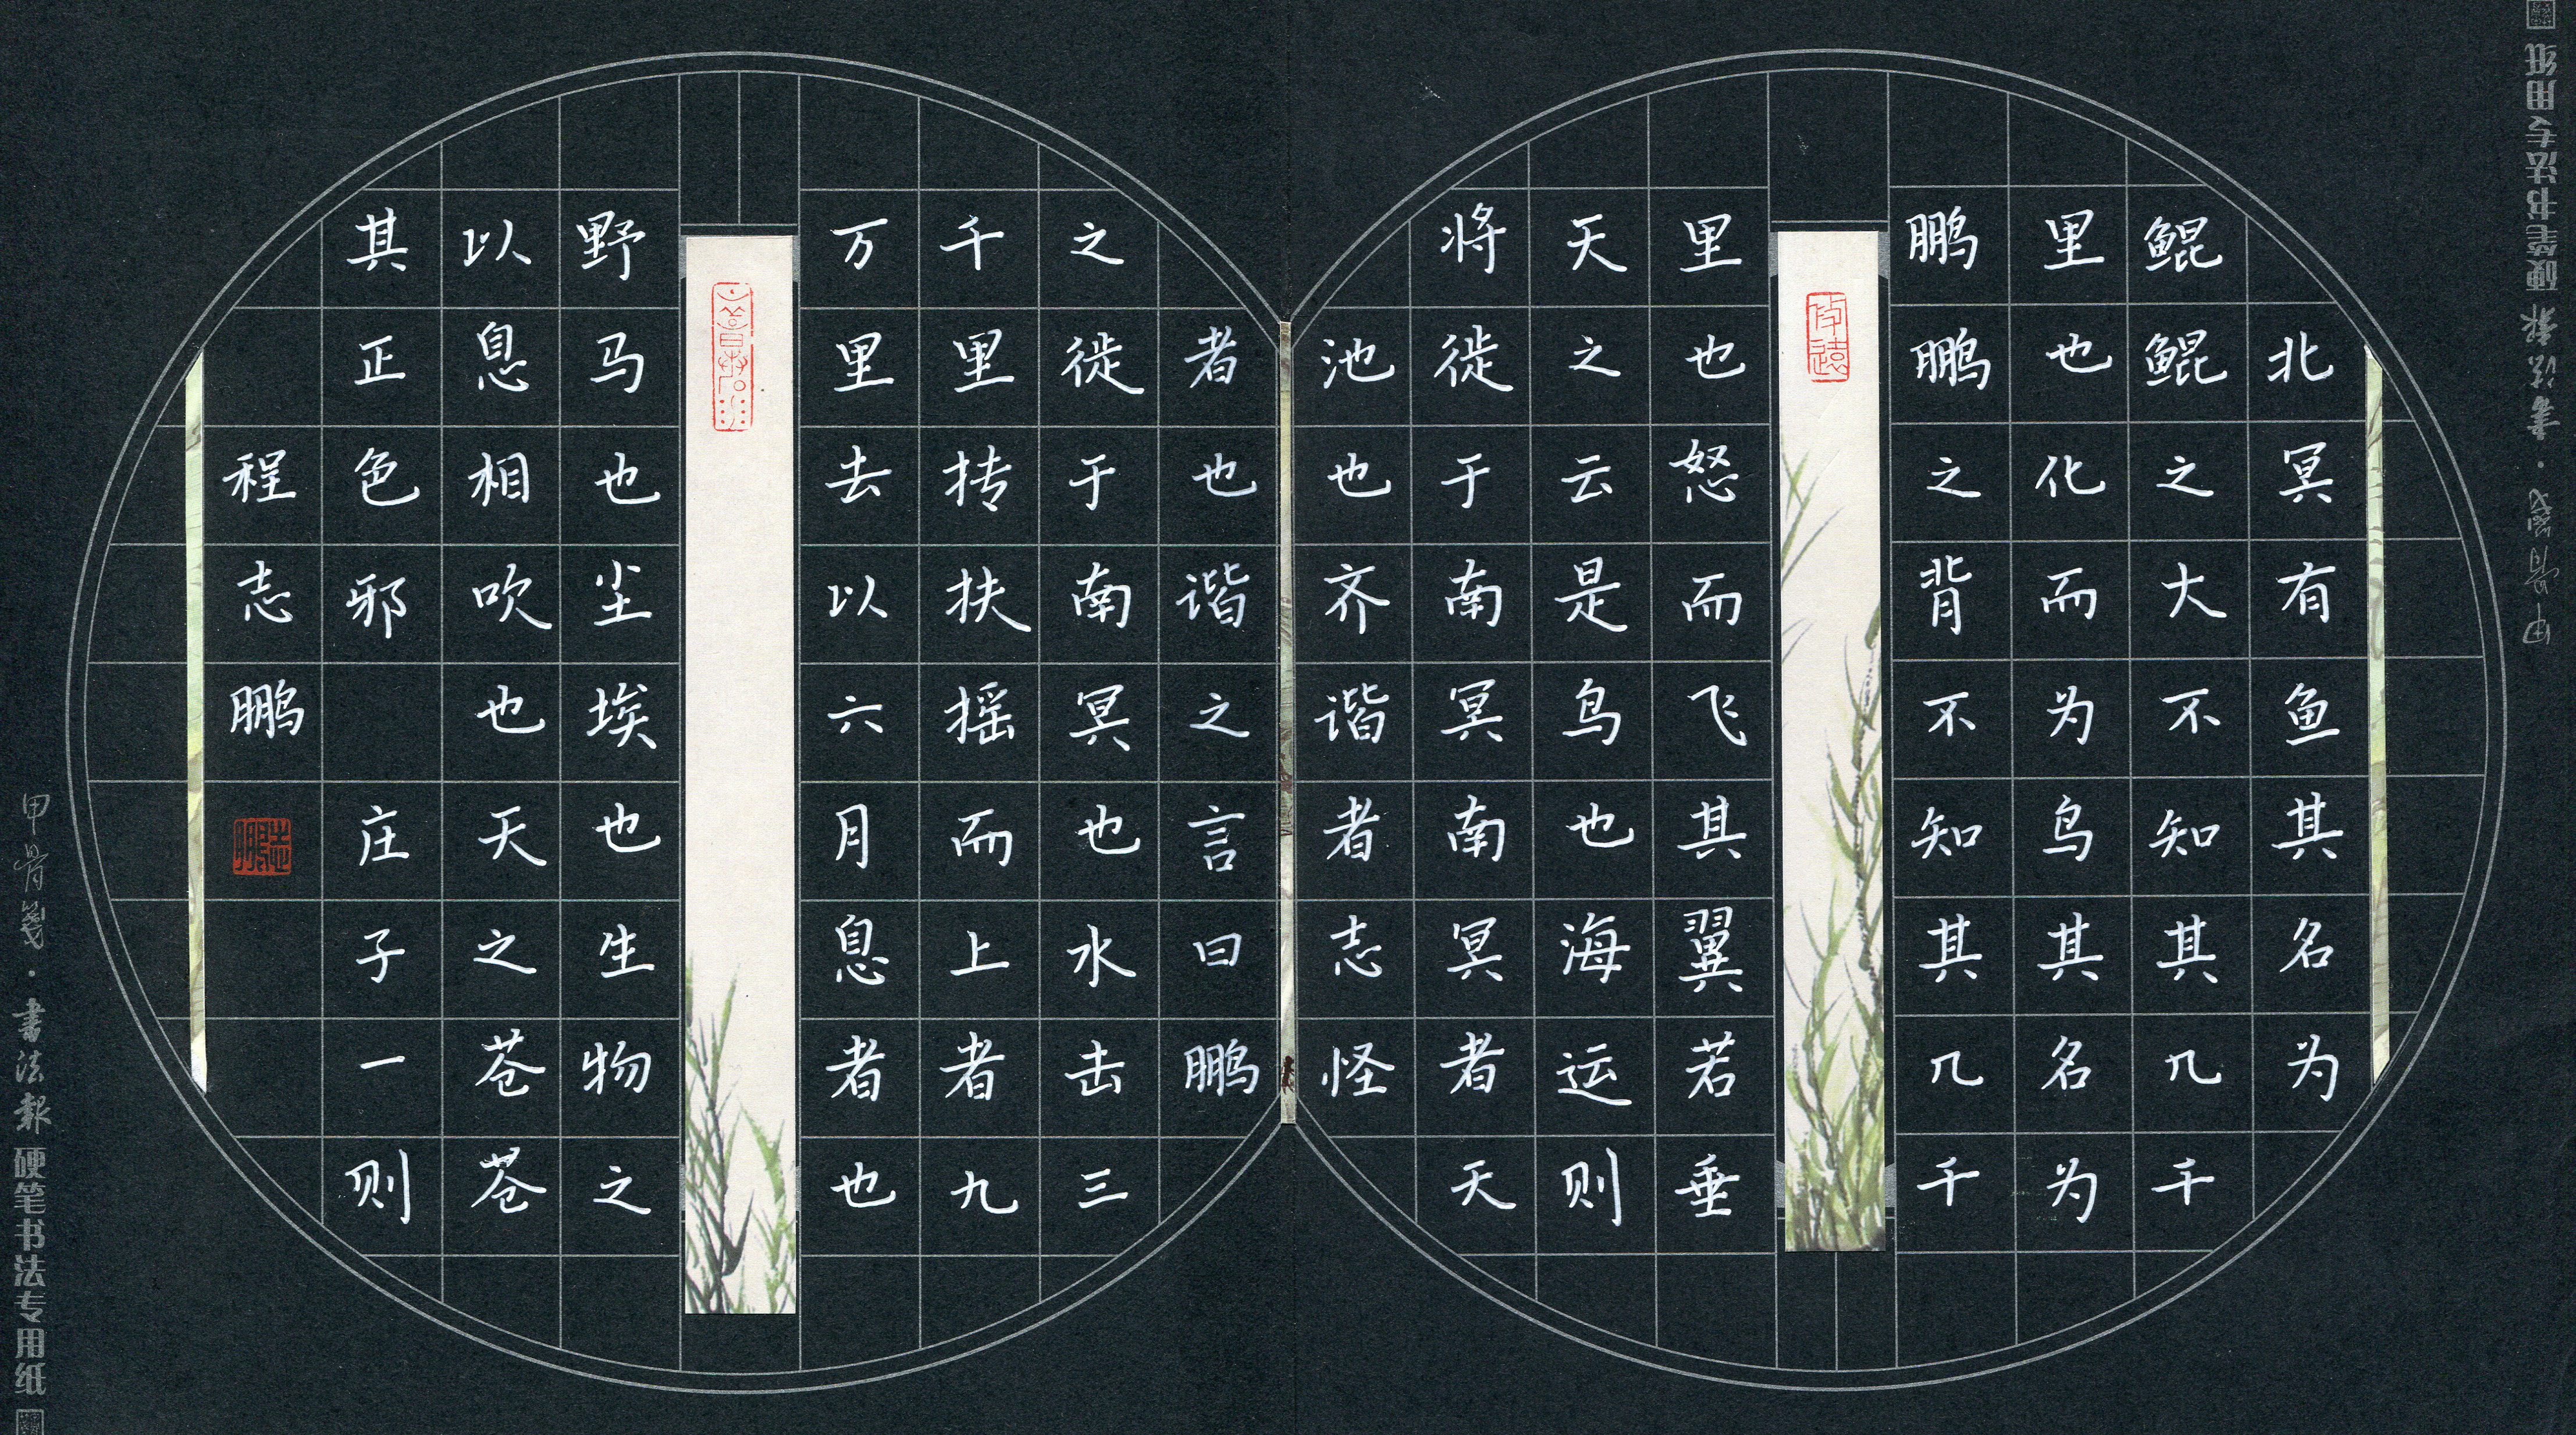 甲骨笺·書法報硬笔书法专用纸
北冥有鱼其名为
鲲鲲之大不知其几千
里也化而为鸟其名为
鹏鹏之背不知其几千
里也怒而飞其翼若垂
天之云是鸟也海运则
将徙于南冥南冥者天
池也齐谐者志怪
者也谐之言曰鹏
之徙于南冥也水击三
千里抟扶摇而上者九
万里去以六月息者也
野马也尘埃也生物之
以息相吹也天之苍苍
其正色邪 庄子一则
程志鹏
志鹏
甲骨笺·書法報硬笔书法专用纸